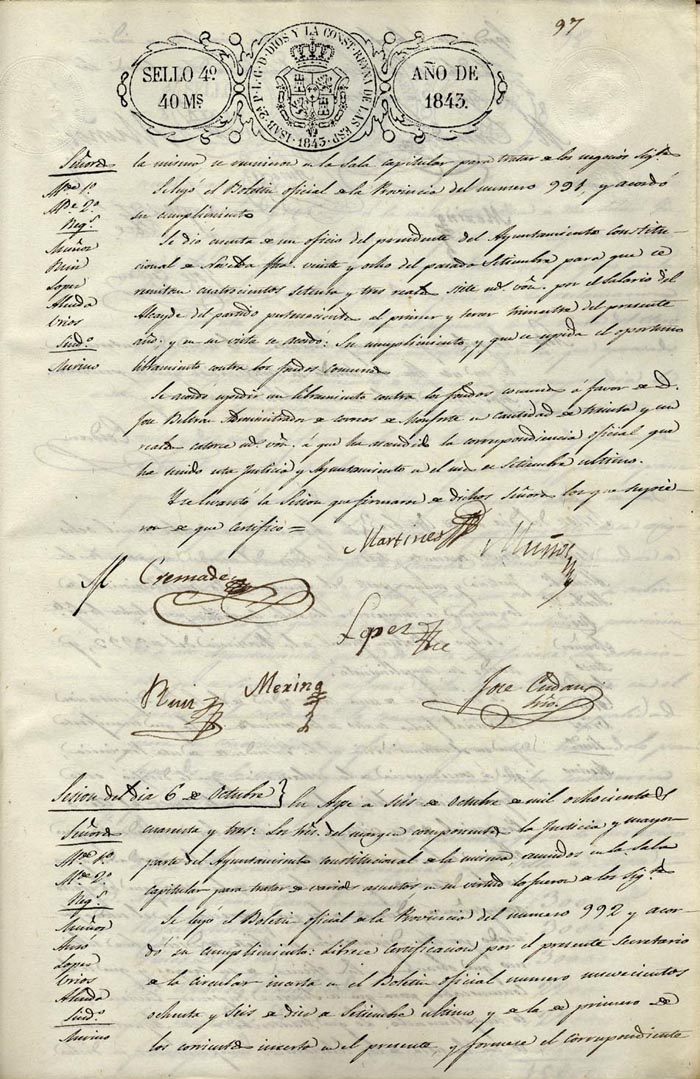 97
SELLO 4º
40 Ms
ISAB. 2ª P. L. G. D. DIOS Y LA CONST. REYNA DE LAS ESP.
1843
AÑO DE
1843.
Señores
Mre 1º
Mre 2º
Regs
Muñoz
Ruiz
Lopez
Alenda
Urios
Sindº
Merino
la misma se reunieron en la sala capitular para tratar de los negocios sigtes
Se leyó el Boletin oficial de la Provincia del numero 991 y acordó
su cumplimiento
Se dió cuenta de un oficio del presidente del Ayuntamiento constitu-
cional de Novelda fha. veinte y ocho del pasado Setiembre para que se
remitan cuatrocientos setenta y tres reales siete ms. von. por el salario del
Alcayde del partido perteneciente al primer y tercer trimestre del presente
año: y en su vista se acordo: Su cumplimiento, y que se espida el oportuno
libramiento contra los fondos comunes
Se acordó espedir un libramiento contra los fondos comunes á favor de D.
Jose Beltran Administrador de correos de Monforte en cantidad de treinta y un
reales catorce ms. von. á que ha ascendido la correspondencia oficial que
ha tenido esta Justicia y Ayuntamiento en el mes de Setiembre ultimo.
Y se levantó la Sesion que firmaron de dichos Señores los que supie-
ron de que certifico =
Martinez
Muñoz
Cremades
Lopez
Ruiz
Merino
Jose
Srio.
Sesion del dia 6 de Octubre
En Aspe a seis de Octubre de mil ochocientos
cuarenta y tres: Los Sres. del margen componentes la Justicia y mayor
parte del Ayuntamiento constitucional de la misma reunidos en la sala
capitular para tratar de varios asuntos en su virtud lo fueron de los sigtes
Señores
Mre 1º
Mre 2º
Regs
Muñoz
Miró
Lopez
Urios
Alenda
Sindº
Merino
Se leyo el Boletin oficial de la Provincia del numero 992 y acor-
dó su cumplimiento: Librese certificacion por el presente secretario
de la circular inserta en el Boletin oficial numero nuevecientos
ochenta y seis de diez de Setiembre ultimo y de la de primero de
los corrientes inserta en el presente, y formese el correspondiente